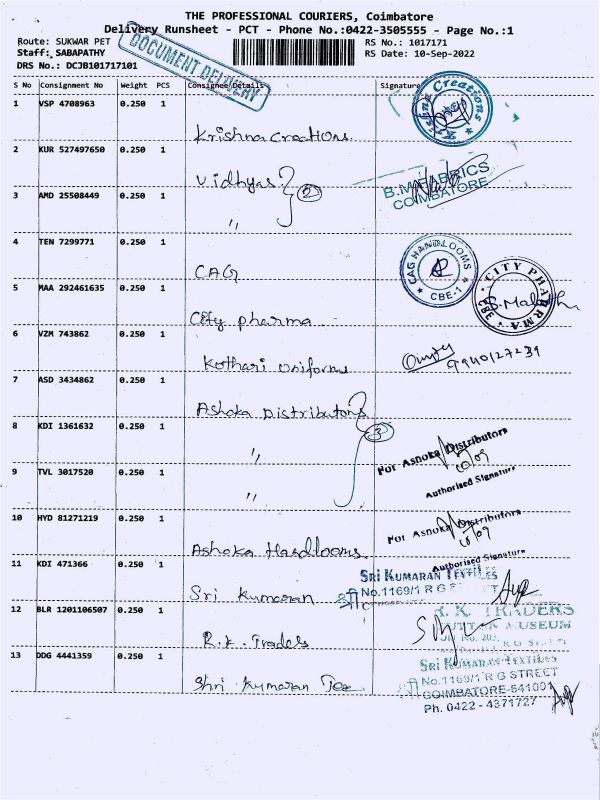 THE PROFESSIONAL COURIERS, Coimbatore
Delivery Runsheet - PCT - Phone No.:0422-3505555 - Page No.:1
Route: SUKWAR PET
RS No.: 1017171
Staff: SABAPATHY
RS Date: 10-Sep-2022
DRS No.: DCJB101717101
DOCUMENT DELIVERY
S No Consignment No Weight PCS Consignee Details Signature
1 VSP 4708963 0.250 1
Krishna Creations
Krishna Creations
2 KUR 527497650 0.250 1
Vidhyas
2
B.M FABRICS
COIMBATORE
3 AMD 25508449 0.250 1
"
4 TEN 7299771 0.250 1
CAG
CAG HANDLOOMS
CBE-1
5 MAA 292461635 0.250 1
City pharma
CITY PHARMA
382
S. Malathi
6 VZM 743862 0.250 1
Kothari Uniforms
9940127239
7 ASD 3434862 0.250 1
Ashoka Distributors
3
8 KDI 1361632 0.250 1
"
For Ashoka Distributors
10/09
Authorised Signature
9 TVL 3017520 0.250 1
"
For Ashoka Distributors
10/09
Authorised Signature
10 HYD 81271219 0.250 1
Ashoka Handlooms
11 KDI 471366 0.250 1
Sri Kumaran
SRI KUMARAN TEXTILES
No.1169/1 R G ST
12 BLR 1201106507 0.250 1
R.K. Traders
R.K. TRADERS
MUSEUM
13 DDG 4441359 0.250 1
Shri Kumaran Tex
SRI KUMARAN TEXTILES
No.1169/1 R G STREET
COIMBATORE-641001
Ph. 0422 - 4371727